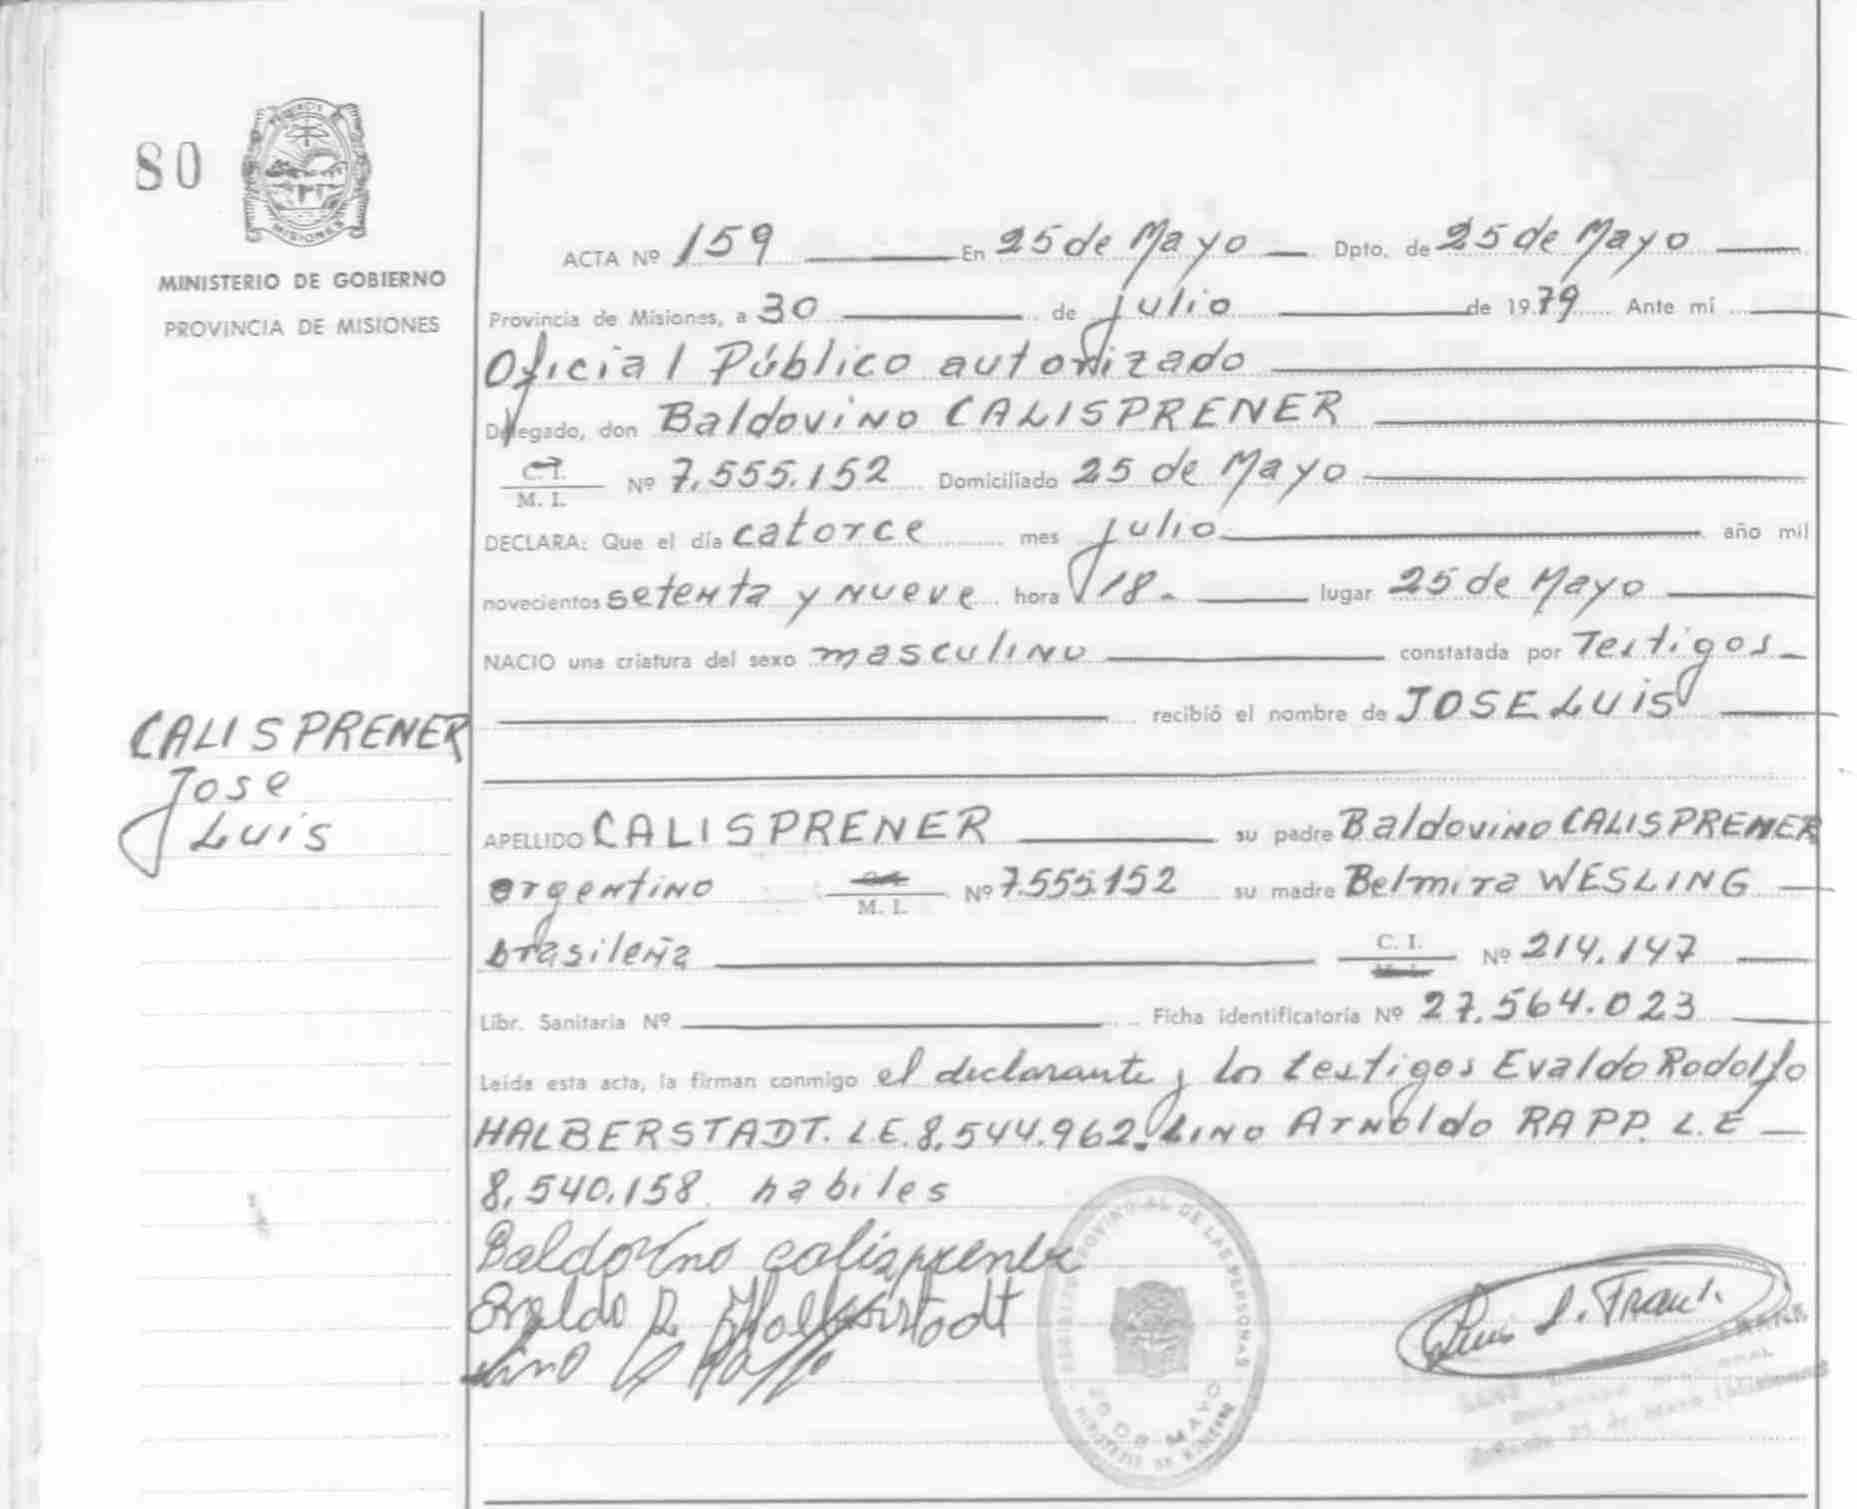 80
MISIONES
MINISTERIO DE GOBIERNO
PROVINCIA DE MISIONES
ACTA Nº 159 En 25 de Mayo Dpto. de 25 de Mayo
Provincia de Misiones, a 30 de julio de 1979 Ante mi
Oficial Público autorizado
Delegado, don Baldovino CALISPRENER
C. I.
M. I. Nº 7.555.152 Domiciliado 25 de Mayo
DECLARA: Que el día catorce mes julio año mil
novecientos setenta y nueve hora 18.- lugar 25 de Mayo
NACIO una criatura del sexo masculino constatada por Testigos
recibió el nombre de JOSE LUIS
CALISPRENER
Jose
Luis
APELLIDO CALISPRENER su padre Baldovino CALISPRENER
argentino M. I. Nº 7.555.152 su madre Belmira WESLING
brasileña C. I. Nº 214.147
Libr. Sanitaria Nº Ficha identificatoria Nº 27.564.023
Leída esta acta, la firman conmigo el declarante y los testigos Evaldo Rodolfo
HALBERSTADT. L.E. 8.544.962. LINO Arnoldo RAPP. L.E
8.540.158. habiles
Baldovino calisprener
Evaldo R. Halberstadt
Lino A Rapp
PROVINCIAL DE LAS PERSONAS
25 DE MAYO
MINISTERIO DE GOBIERNO
Luis L. Frank
FRANK
25 de Mayo (Misiones)